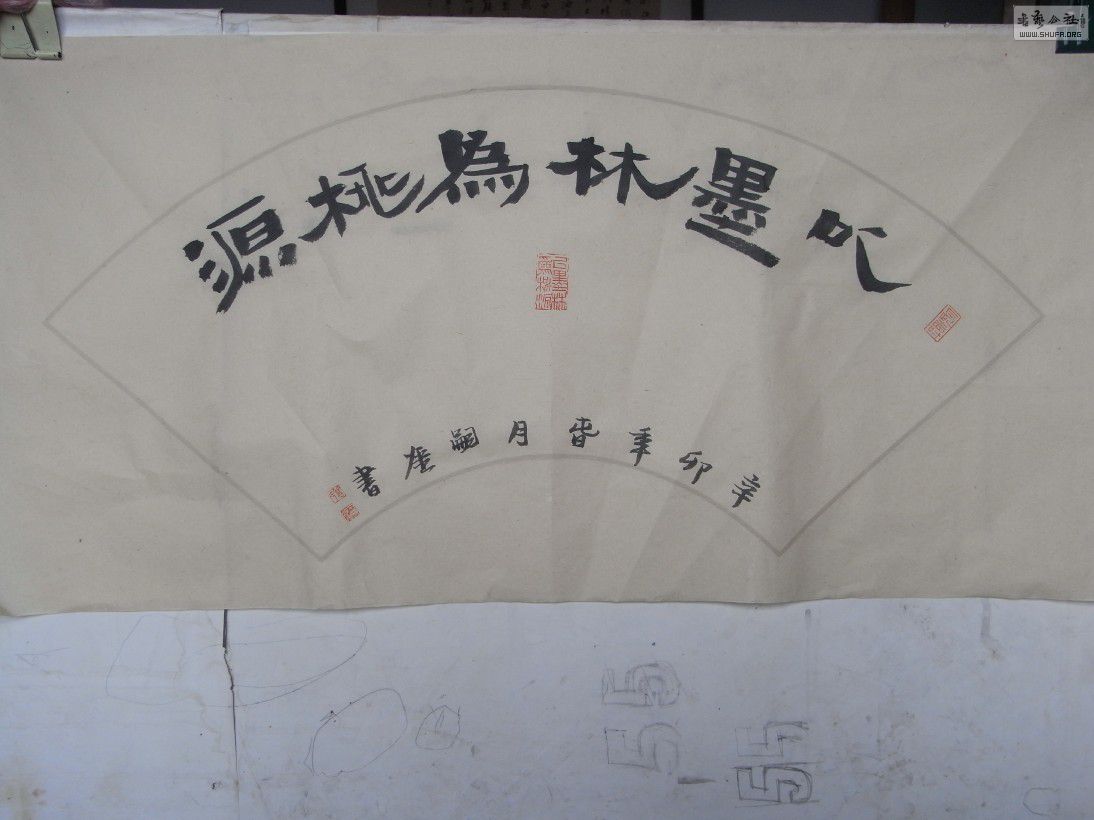 以墨林為桃源
辛卯年春月嗣廑書
書法公社
WWW.SHUFA.ORG
55
55